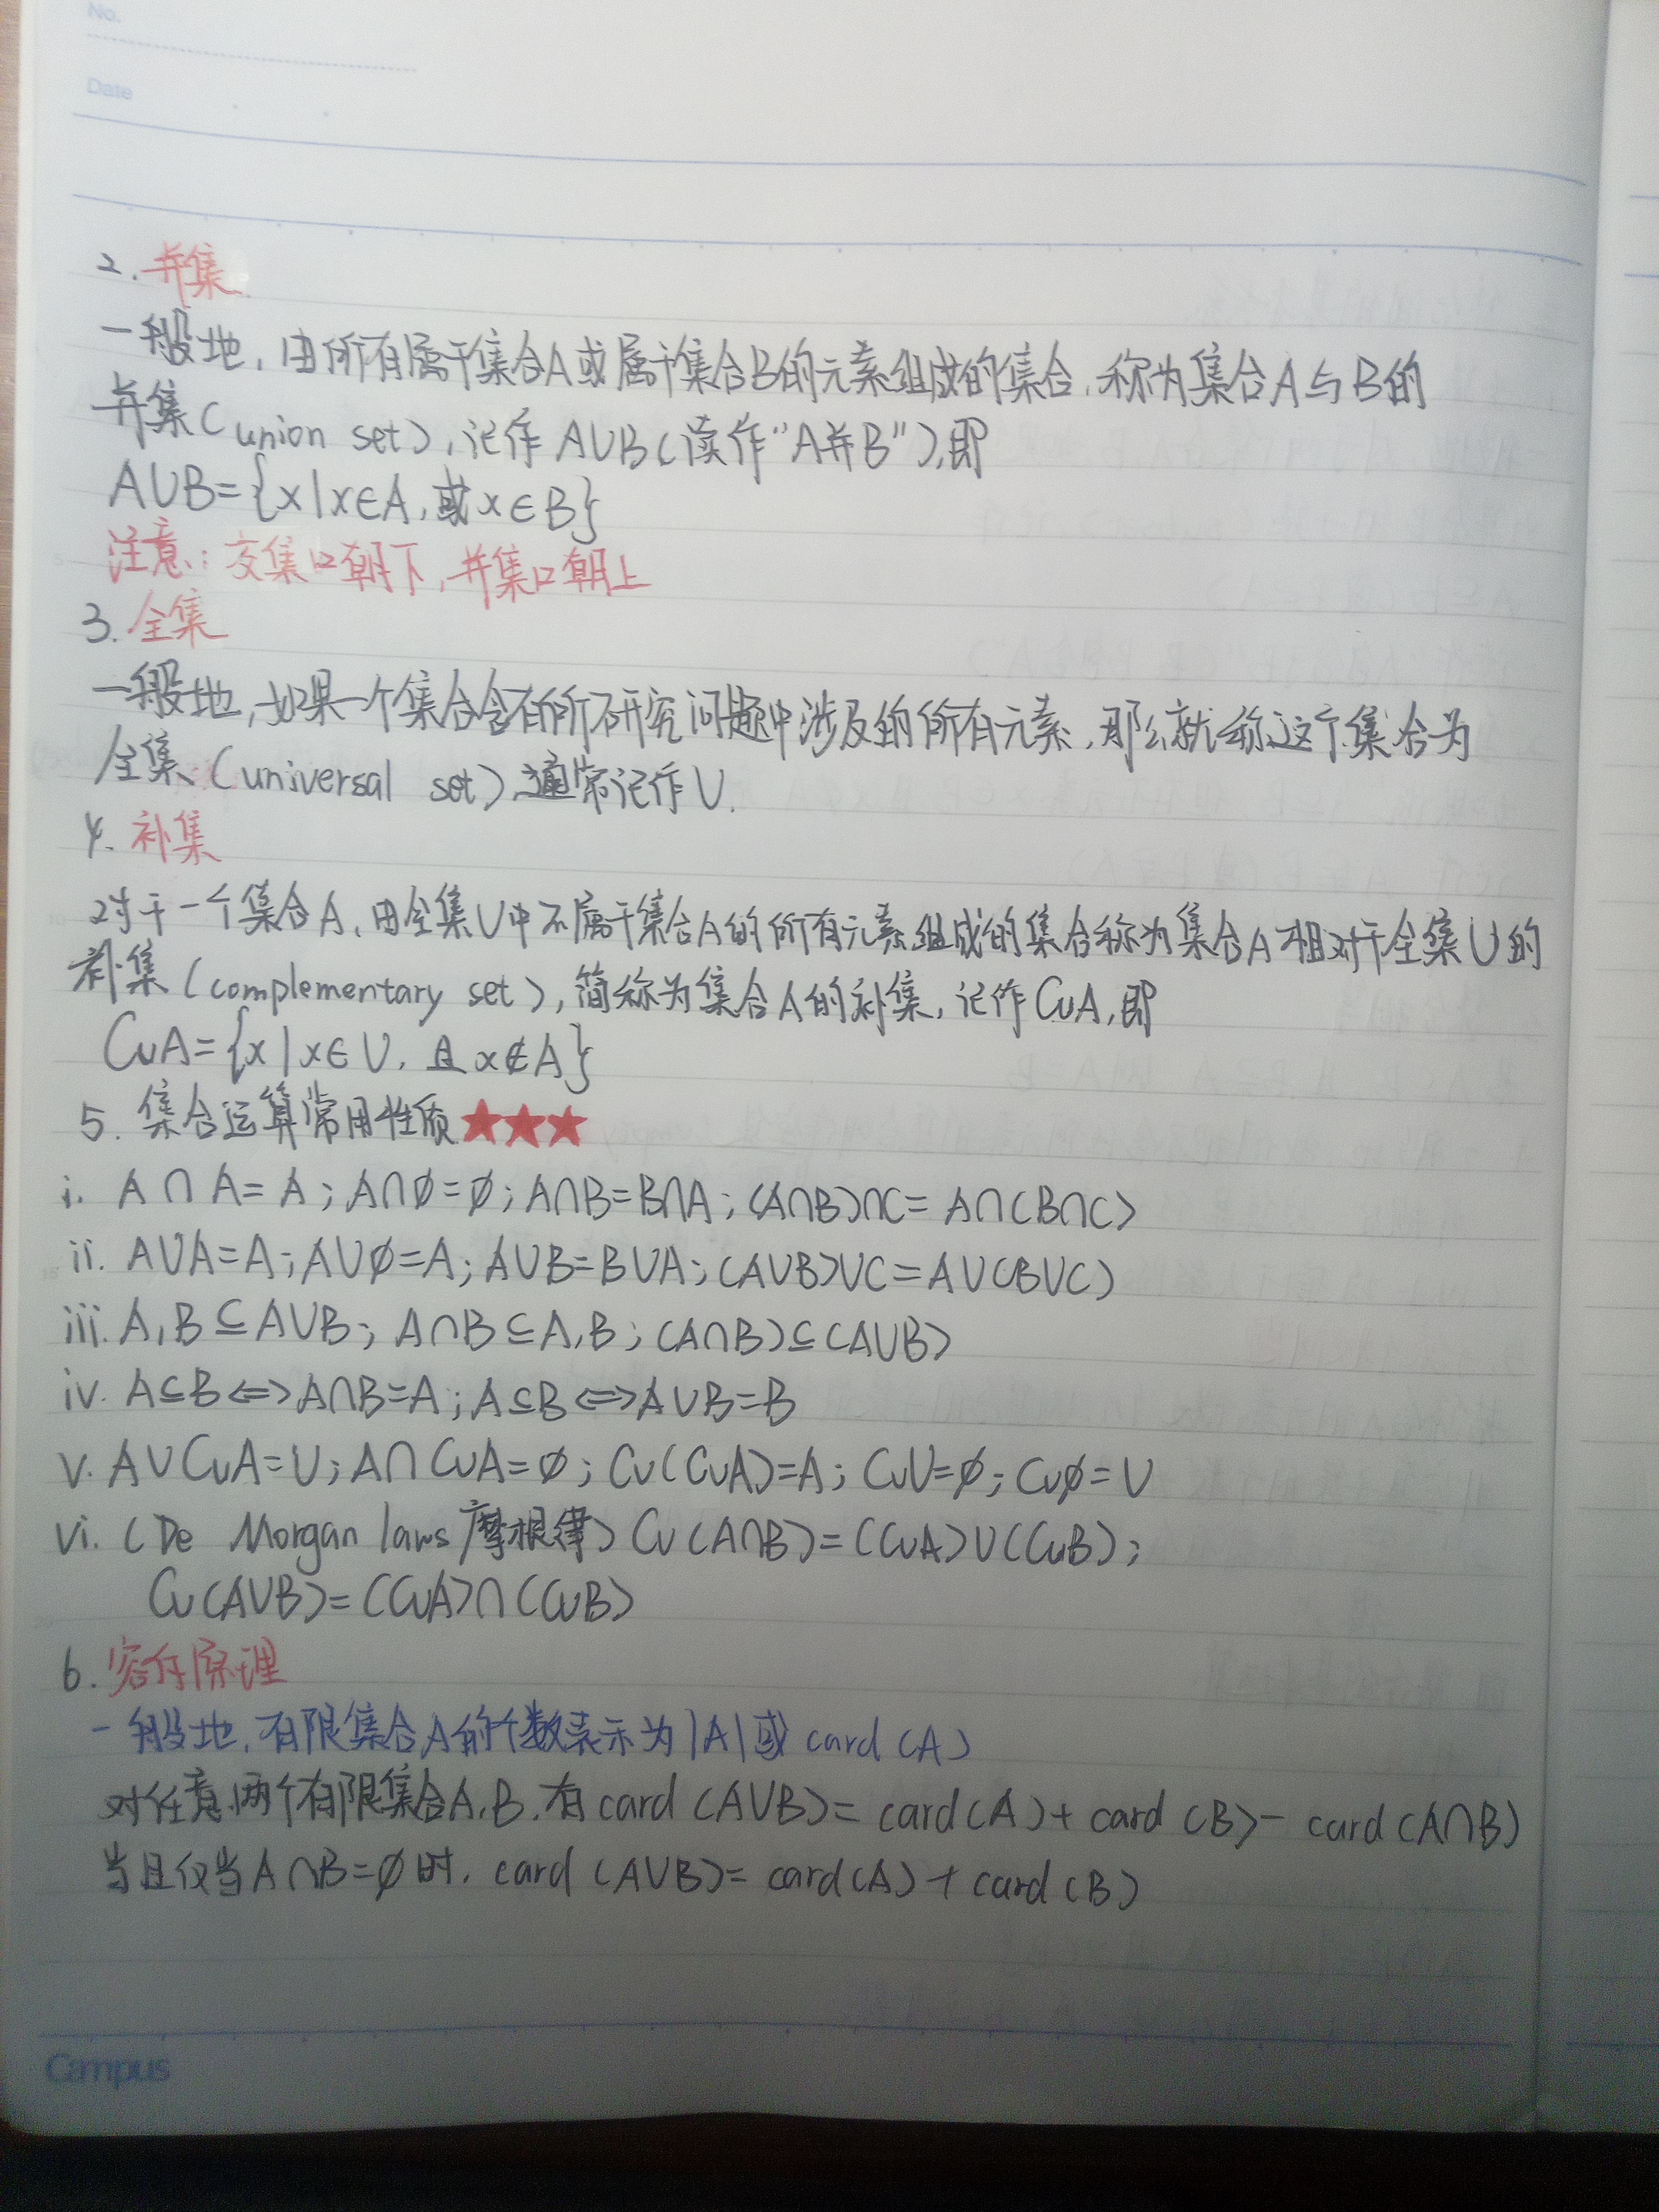 No.
Date
2. 并集
一般地,由所有属于集合A或属于集合B的元素组成的集合,称为集合A与B的
并集(union set),记作A∪B(读作"A并B"),即
A∪B={x|x∈A,或x∈B}
注意:交集口朝下,并集口朝上
3. 全集
一般地,如果一个集合含有所研究问题中涉及的所有元素,那么就称这个集合为
全集(universal set),通常记作U.
4. 补集
对于一个集合A,由全集U中不属于集合A的所有元素组成的集合称为集合A相对于全集U的
补集(complementary set),简称为集合A的补集,记作∁UA,即
∁UA={x|x∈U,且x∉A}
5. 集合运算常用性质★★★
i. A∩A=A;A∩∅=∅;A∩B=B∩A;(A∩B)∩C=A∩(B∩C)
ii. A∪A=A;A∪∅=A;A∪B=B∪A;(A∪B)∪C=A∪(B∪C)
iii. A,B⊆A∪B;A∩B⊆A,B;(A∩B)⊆(A∪B)
iv. A⊆B⟺A∩B=A;A⊆B⟺A∪B=B
v. A∪∁UA=U;A∩∁UA=∅;∁U(∁UA)=A;∁UU=∅;∁U∅=U
vi. (De Morgan laws 摩根律)∁U(A∩B)=(∁UA)∪(∁UB);
∁U(A∪B)=(∁UA)∩(∁UB)
6. 容斥原理
一般地,有限集合A的个数表示为|A|或card(A)
对任意两个有限集合A,B,有card(A∪B)=card(A)+card(B)-card(A∩B)
当且仅当A∩B=∅时,card(A∪B)=card(A)+card(B)
Campus